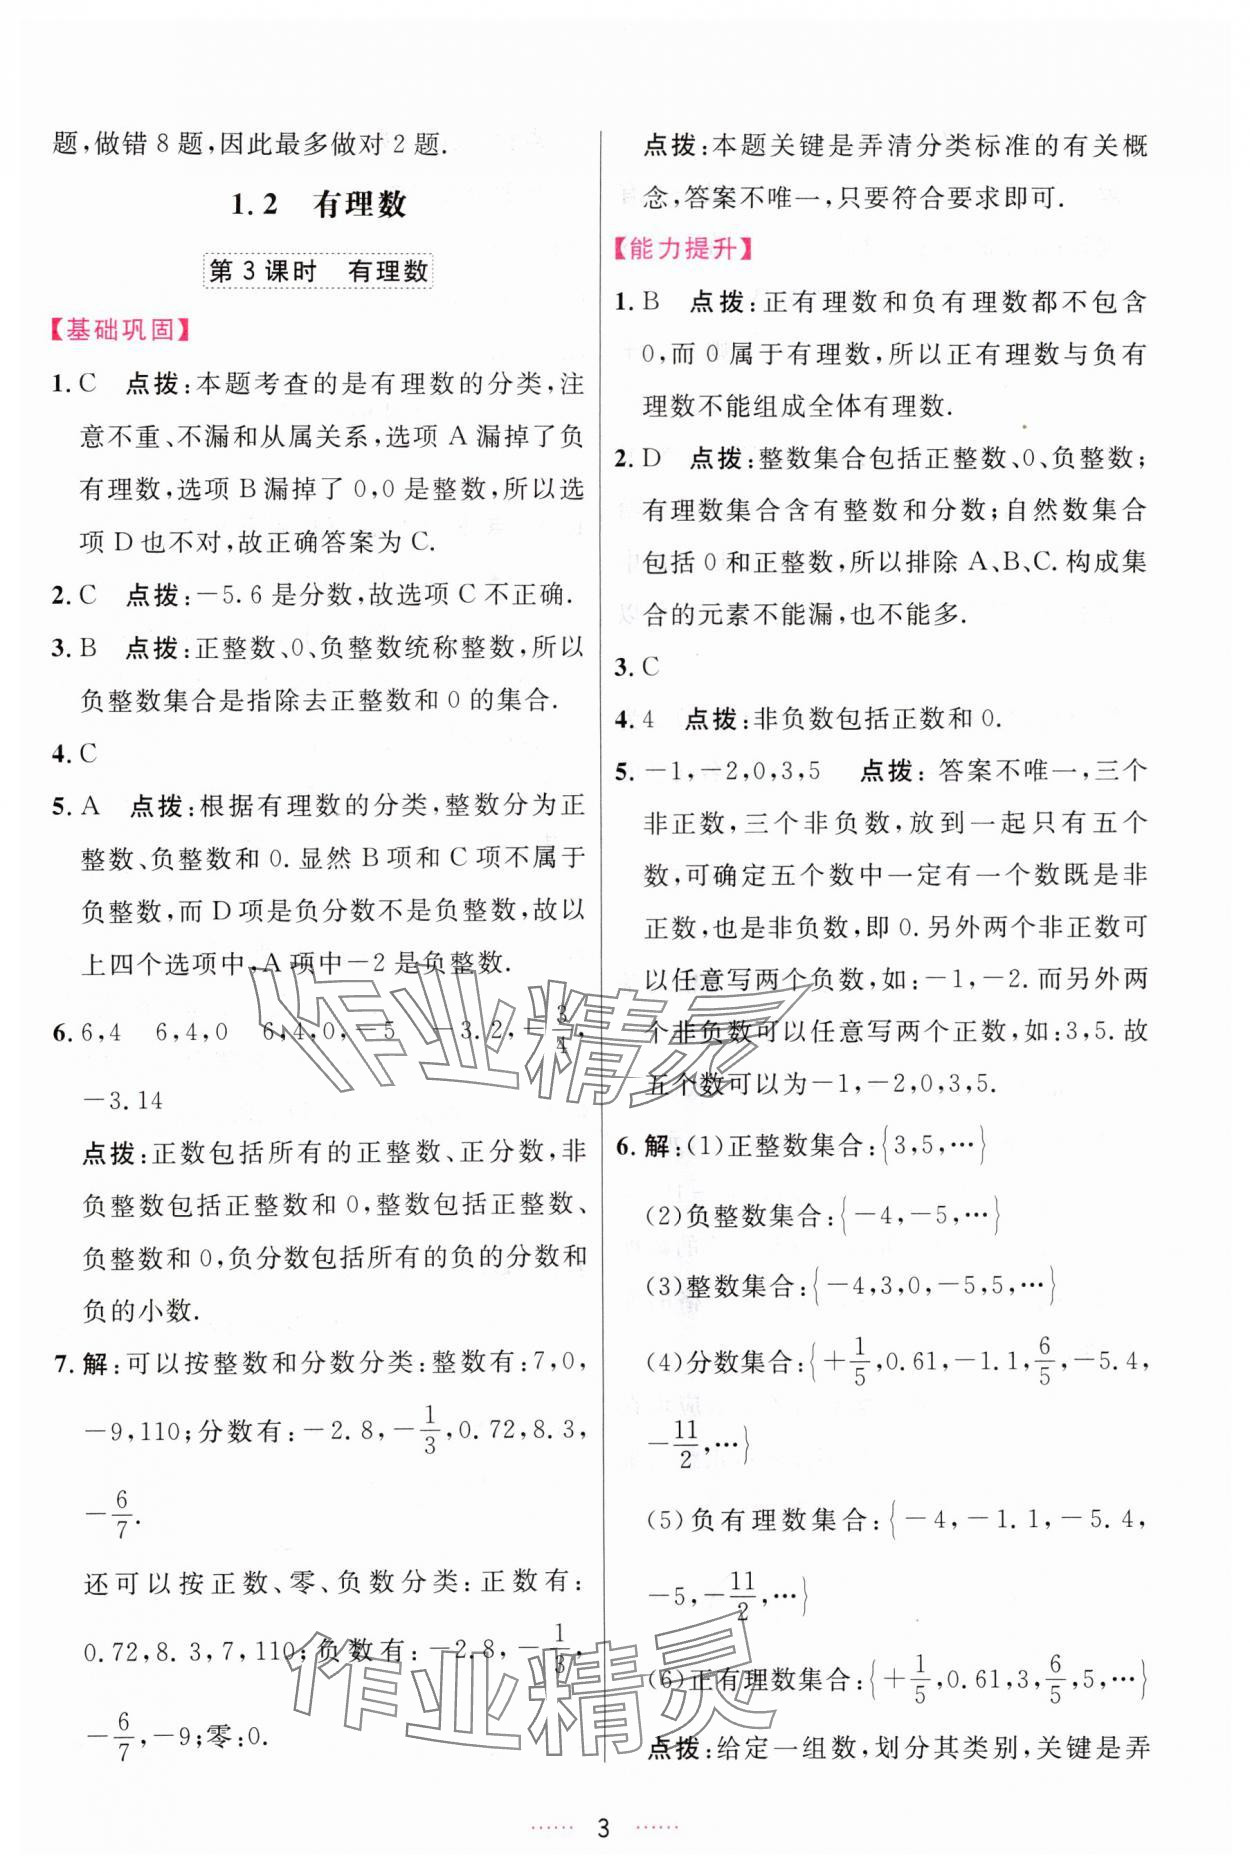 题,做错8题,因此最多做对2题.
1.2 有理数
第3课时 有理数
【基础巩固】
1. C 点拨:本题考查的是有理数的分类,注
意不重、不漏和从属关系,选项A漏掉了负
有理数,选项B漏掉了0,0是整数,所以选
项D也不对,故正确答案为C.
2. C 点拨:-5.6是分数,故选项C不正确.
3. B 点拨:正整数、0、负整数统称整数,所以
负整数集合是指除去正整数和0的集合.
4. C
5. A 点拨:根据有理数的分类,整数分为正
整数、负整数和0.显然B项和C项不属于
负整数,而D项是负分数不是负整数,故以
上四个选项中,A项中-2是负整数.
6. 6,4 6,4,0 6,4,0,-5 -3.2,-3/4,
-3.14
点拨:正数包括所有的正整数、正分数,非
负整数包括正整数和0,整数包括正整数、
负整数和0,负分数包括所有的负的分数和
负的小数.
7. 解:可以按整数和分数分类:整数有:7,0,
-9,110;分数有:-2.8,-1/3,0.72,8.3,
-6/7.
还可以按正数、零、负数分类:正数有:
0.72,8.3,7,110;负数有:-2.8,-1/3,
-6/7,-9;零:0.
点拨:本题关键是弄清分类标准的有关概
念,答案不唯一,只要符合要求即可.
【能力提升】
1. B 点拨:正有理数和负有理数都不包含
0,而0属于有理数,所以正有理数与负有
理数不能组成全体有理数.
2. D 点拨:整数集合包括正整数、0、负整数;
有理数集合含有整数和分数;自然数集合
包括0和正整数,所以排除A、B、C.构成集
合的元素不能漏,也不能多.
3. C
4. 4 点拨:非负数包括正数和0.
5. -1,-2,0,3,5 点拨:答案不唯一,三个
非正数,三个非负数,放到一起只有五个
数,可确定五个数中一定有一个数既是非
正数,也是非负数,即0.另外两个非正数可
以任意写两个负数,如:-1,-2.而另外两
个非负数可以任意写两个正数,如:3,5.故
五个数可以为-1,-2,0,3,5.
6. 解:(1)正整数集合:{3,5,…}
(2)负整数集合:{-4,-5,…}
(3)整数集合:{-4,3,0,-5,5,…}
(4)分数集合:{+1/5,0.61,-1.1,6/5,-5.4,
-11/2,…}
(5)负有理数集合:{-4,-1.1,-5.4,
-5,-11/2,…}
(6)正有理数集合:{+1/5,0.61,3,6/5,5,…}
点拨:给定一组数,划分其类别,关键是弄
作业精灵
作业精灵
…… 3 ……